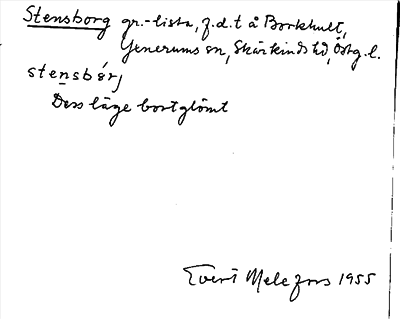 Stensborg gr.-lista, f.d. t å Borkhult,
Yxnerums sn, Skärkinds hd, Östg.l.
stensbǿrj
Dess läge bortglömt
Evert Melefors 1955